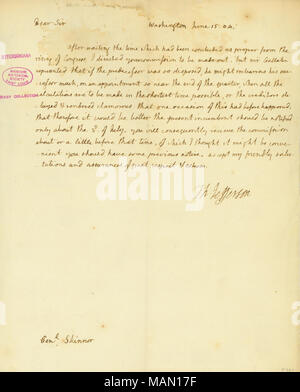 Dear Sir
Washington June 15. 04.
After waiting the time which had been concluded as proper from the
rising of Congress, I directed your commission to be made out. but mr Gallatin
requested that if the predecessor was so disposed, he might embarrass his suc-
cessor much, on an appointment so near the end of the quarter, when all the
calculations are to be made in the shortest time possible, or the creditors de-
layed & excited clamorous that one occasion of this had before happened,
that therefore it would be better the present incumbent should be notified
only about the 3. of July. you will consequently receive the commission
about or a little before that time, of which I thought it might be conve-
nient you should have some previous notice. accept my friendly salu-
tations and assurances of great respect & esteem.
Th: Jefferson
Genl. Skinner
MISSOURI
HISTORICAL
SOCIETY
alamy
Image ID: MAN17F
www.alamy.com